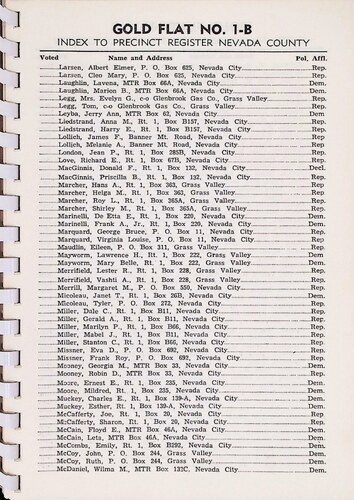 GOLD FLAT NO. 1-B
INDEX TO PRECINCT REGISTER NEVADA COUNTY
Voted Name and Address Pol. Affl.
Larsen, Albert Elmer, P. O. Box 625, Nevada City Rep.
Larsen, Cleo Mary, P. O. Box 625, Nevada City Rep.
Laughlin, Lavena, MTR Box 66A, Nevada City Dem.
Laughlin, Marion B., MTR Box 66A, Nevada City Dem.
Legg, Mrs. Evelyn G., c-o Glenbrook Gas Co., Grass Valley Rep.
Legg, Tom, c-o Glenbrook Gas Co., Grass Valley Rep.
Leyba, Jerry Ann, MTR Box 62, Nevada City Dem.
Liedstrand, Anna M., Rt. 1, Box B157, Nevada City Rep.
Liedstrand, Harry E., Rt. 1, Box B157, Nevada City Rep.
Lollich, James F., Banner Mt. Road, Nevada City Rep.
Lollich, Melanie A., Banner Mt. Road, Nevada City Rep.
London, Jean P., Rt. 1, Box 285B, Nevada City Rep.
Love, Richard E., Rt. 1, Box 67B, Nevada City Rep.
MacGinnis, Donald F., Rt. 1, Box 132, Nevada City Decl.
MacGinnis, Priscilla B., Rt. 1, Box 132, Nevada City Rep.
Marcher, Hans A., Rt. 1, Box 363, Grass Valley Rep.
Marcher, Helga M., Rt. 1, Box 363, Grass Valley Rep.
Marcher, Roy L., Rt. 1, Box 365A, Grass Valley Rep.
Marcher, Shirley M., Rt. 1, Box 365A, Grass Valley Rep.
Marinelli, De Etta E., Rt. 1, Box 220, Nevada City Dem.
Marinelli, Frank A., Jr., Rt. 1, Box 220, Nevada City Dem.
Marquard, George Bruce, P. O. Box 11, Nevada City Rep.
Marquard, Virginia Louise, P. O. Box 11, Nevada City Rep.
Maudlin, Eileen, P. O. Box 311, Grass Valley Rep.
Mayworm, Lawrence H., Rt. 1, Box 222, Grass Valley Dem.
Mayworm, Mary Belle, Rt. 1, Box 222, Grass Valley Dem.
Merrifield, Lester R., Rt. 1, Box 228, Grass Valley Rep.
Merrifield, Vashti A., Rt. 1, Box 228, Grass Valley Rep.
Merrill, Margaret M., P. O. Box 550, Nevada City Rep.
Micoleau, Janet T., Rt. 1, Box 26B, Nevada City Dem.
Micoleau, Tyler, P. O. Box 272, Nevada City Rep.
Miller, Dale C., Rt. 1, Box B11, Nevada City Rep.
Miller, Gerald A., Rt. 1, Box B11, Nevada City Rep.
Miller, Marilyn P., Rt. 1, Box B66, Nevada City Rep.
Miller, Mabel J., Rt. 1, Box B11, Nevada City Rep.
Miller, Stanton C., Rt. 1, Box B66, Nevada City Rep.
Missner, Eva D., P. O. Box 692, Nevada City Rep.
Missner, Frank Roy, P. O. Box 692, Nevada City Rep.
Mooney, Georgia M., MTR Box 33, Nevada City Dem.
Mooney, Robin D., MTR Box 33, Nevada City Rep.
Moore, Ernest E., Rt. 1, Box 235, Nevada City Dem.
Moore, Mildred, Rt. 1, Box 235, Nevada City Dem.
Muckey, Charles E., Rt. 1, Box 139-A, Nevada City Dem.
Muckey, Esther, Rt. 1, Box 139-A, Nevada City Dem.
McCafferty, Joe, Rt. 1, Box 20, Nevada City Rep.
McCafferty, Sharon, Rt. 1, Box 20, Nevada City Rep.
McCain, Floyd E., MTR Box 46A, Nevada City Dem.
McCain, Lets, MTR Box 46A, Nevada City Dem.
McCombs, Emily, Rt. 1, Box B292, Nevada City Rep.
McCoy, John P., Box 244, Grass Valley Dem.
McCoy, Ruth P., Box 244, Grass Valley Dem.
McDaniel, Wilma M., MTR Box 133C, Nevada City Dem.